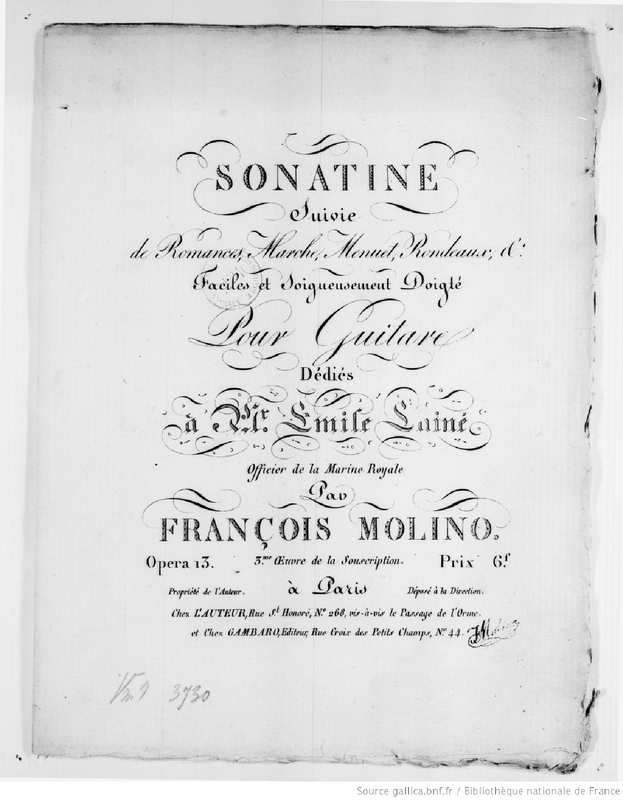 SONATINE
Suivie
de Romances, Marche, Menuet, Rondeaux, &c.
Faciles et Soigneusement Doigté
Pour Guitare
Dédiés
à Mr. Emile Lainé
Officier de la Marine Royale
Par
FRANÇOIS MOLINO.
Opera 13. 3.me Œuvre de la Souscription. Prix 6.f
Propriété de l'Auteur. à Paris Déposé à la Direction.
Chez L'AUTEUR, Rue St. Honoré, No. 268, vis-à-vis le Passage de l'Orme.
et Chez GAMBARO, Editeur, Rue Croix des Petits Champs, No. 44. Molino
Vm9 3730
Source gallica.bnf.fr / Bibliothèque nationale de France